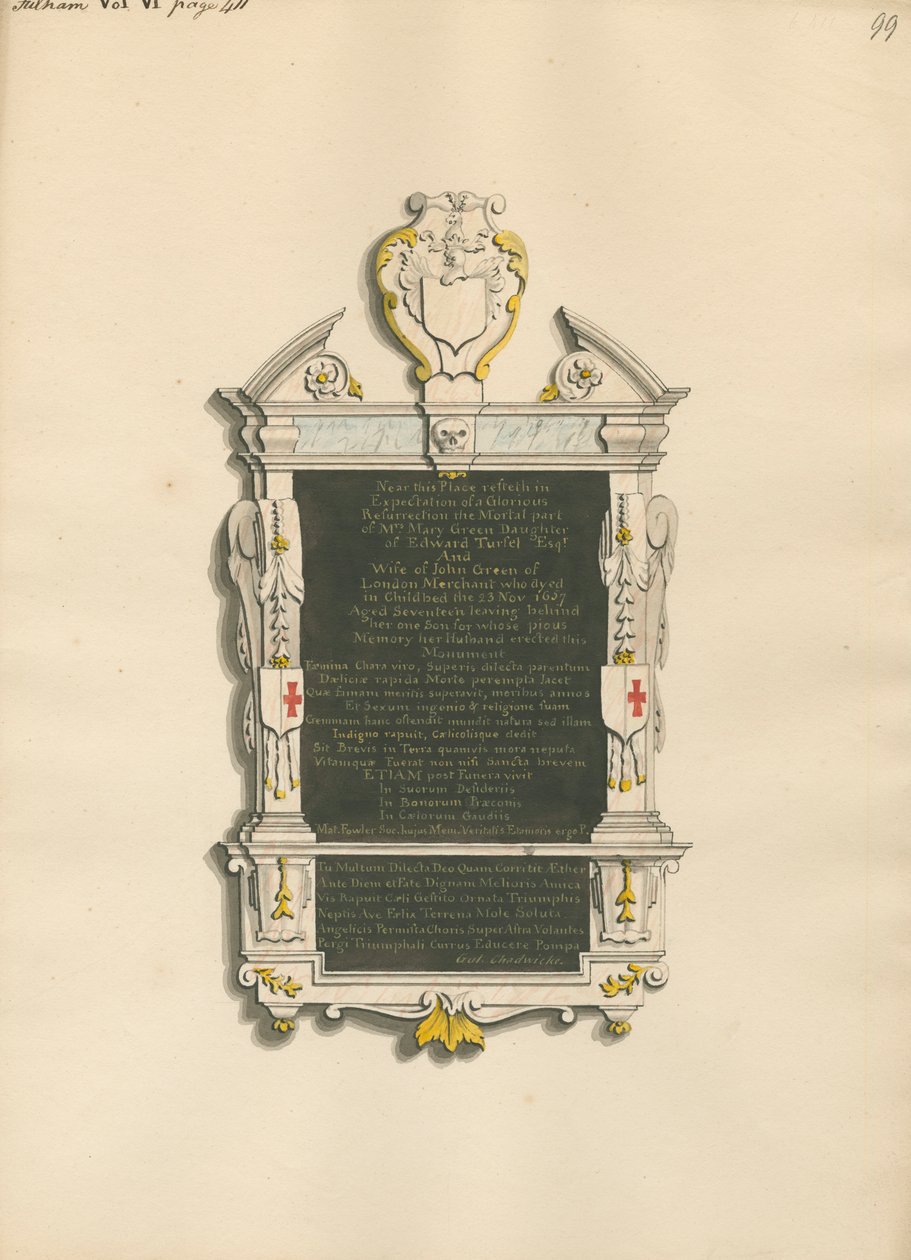 Fulham Vol VI page 411
99
Near this Place resteth in
Expectation of a Glorious
Resurrection the Mortal part
of Mrs Mary Green Daughter
of Edward Tursel Esqr
And
Wife of John Green of
London Merchant who dyed
in Childbed the 23 Nov 1657
Aged Seventeen leaving behind
her one Son for whose pious
Memory her Husband erected this
Monument
Fæmina Chara viro, Superis dilecta parentum
Dæliciæ rapida Morte perempta Jacet
Quæ famam meritis superavit, moribus annos
Et Sexum ingenio & religione suam
Gemmam hanc ostendit mundit natura sed illam
Indigno rapuit, Cælicolisque dedit
Sit Brevis in Terra quamvis mora neputa
Vitamquæ Fuerat non nisi Sancta brevem
ETIAM post Funera vivit
In Suorum Desideriis
In Bonorum Præconis
In Cælorum Gaudiis
Mat. Fowler Soc. hujus Mem. Veritatis Etamoris ergo P.
Tu Multum Dilecta Deo Quam Corritit Æther
Ante Diem et Fate Dignam Melioris Amica
Vis Rapuit Cæli Gestito Ornata Triumphis
Neptis Ave Felix Terrena Mole Soluta
Angelicis Permista Choris Super Astra Volantes
Pergi Triumphali Currus Educere Pompa
Gul. Chadwicke.